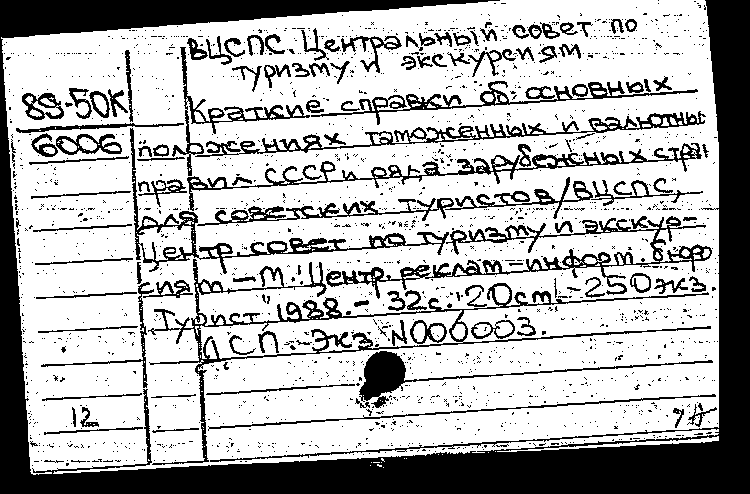 ВЦСПС. Центральный совет по
туризму и экскурсиям.
89-50К
Краткие справки об основных
6006
положениях таможенных и валютны
правил СССР и ряда зарубежных стран
для советских туристов/ВЦСПС,
Центр. совет по туризму и экскур-
сиям. – М.: Центр. реклам-информ. бюро
"Турист", 1988. – 32с.: 20см. – 250экз.
ДСП. Экз. N006003.
12